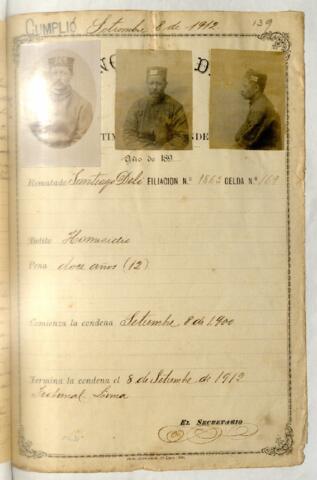 CUMPLIÓ Setiembre 8 de 1912 139
Año de 189
Rematado Santiago Filiacion N.º 1862 CELDA N.º 169
Delito Homicidio
Pena doce años (12)
Comienza la condena Setiembre 8 de 1,900
Termina la condena el 8 de Setiembre de 1912
Tribunal Lima
EL SECRETARIO